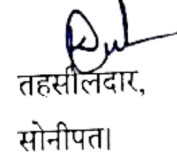 तहसीलदार,
सोनीपत।